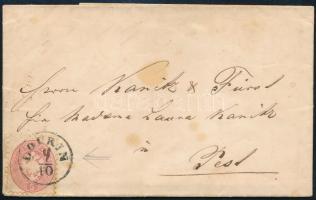 Herrn Kanik & Fürst
für Madame Laura Kanik
in
Pest
9
10